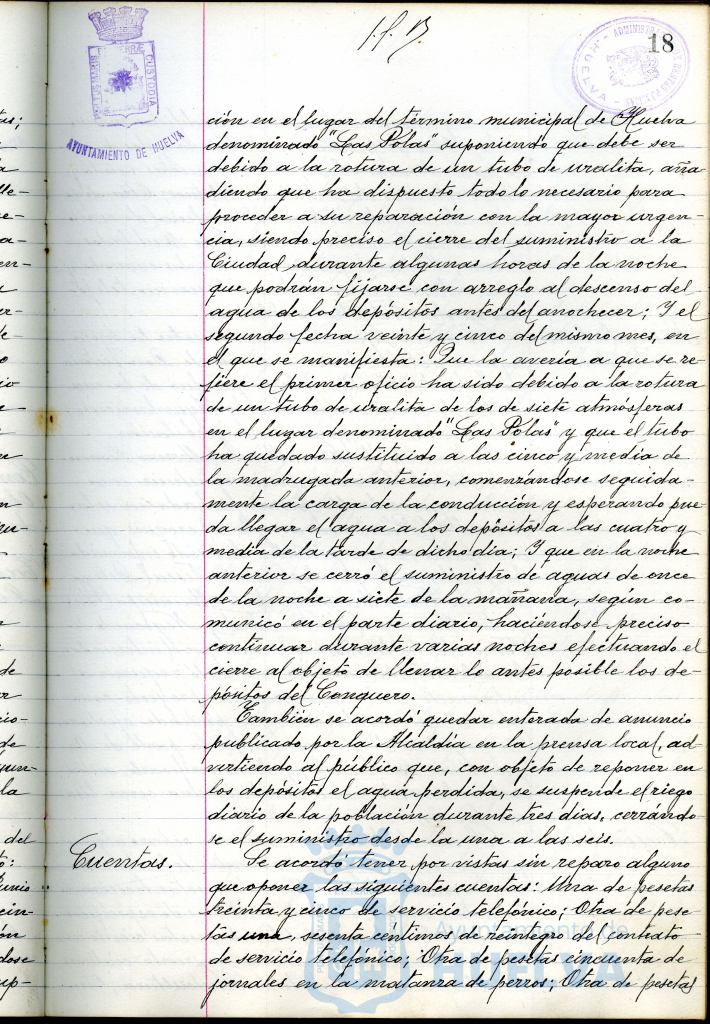 18
AYUNTAMIENTO DE HUELVA
ción en el lugar del término municipal de Huelva
denominado "Las Polas" suponiendo que debe ser
debido a la rotura de un tubo de uralita, aña
diendo que ha dispuesto todo lo necesario para
proceder a su reparación con la mayor urgen-
cia, siendo preciso el cierre del suministro a la
Ciudad durante algunas horas de la noche
que podrán fijarse con arreglo al descenso del
agua de los depósitos antes del anochecer; Y el
segundo fecha veinte y cinco del mismo mes, en
el que se manifiesta: Que la avería a que se re-
fiere el primer oficio ha sido debido a la rotura
de un tubo de uralita de los de siete atmósferas
en el lugar denominado "Las Polas" y que el tubo
ha quedado sustituido a las cinco y media de
la madrugada anterior, comenzándose seguida-
mente la carga de la conducción y esperando pue-
da llegar el agua a los depósitos a las cuatro y
media de la tarde de dicho día; Y que en la noche
anterior se cerró el suministro de aguas de once
de la noche a siete de la mañana, según co-
municó en el parte diario, haciéndose preciso
continuar durante varias noches efectuando el
cierre al objeto de llenar lo antes posible los de-
pósitos del Conquero.
También se acordó quedar enterada de anuncio
publicado por la Alcaldía en la prensa local, ad-
virtiendo al público que, con objeto de reponer en
los depósitos el agua perdida, se suspende el riego
diario de la población durante tres días, cerrándo-
se el suministro desde la una a las seis.
Cuentas. Se acordó tener por vistas sin reparo alguno
que oponer las siguientes cuentas: Una de pesetas
treinta y cinco de servicio telefónico; Otra de pese-
tas una, sesenta céntimos de reintegro del contrato
de servicio telefónico; Otra de pesetas cincuenta de
jornales en la matanza de perros; Otra de pesetas
Ayuntamiento de
HUELVA